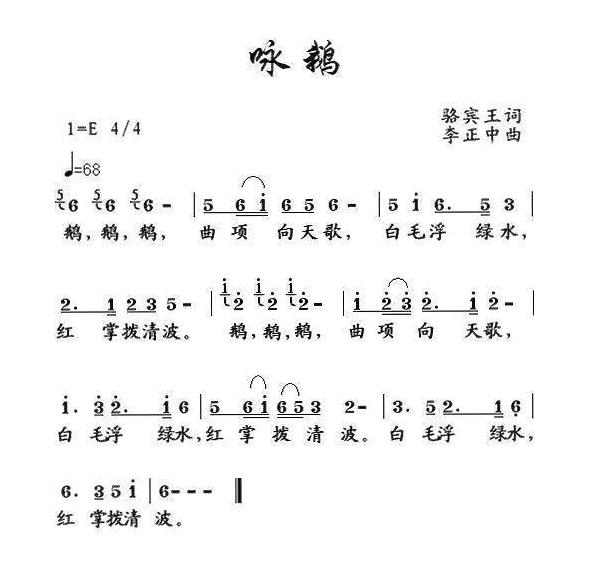 咏鹅
骆宾王词
1=E 4/4
李正中曲
♩=68
5 6 5 6 5 6 - | 5 6 i 6 5 6 - | 5 i 6. 5 3 |
鹅,鹅,鹅, 曲项 向天歌, 白毛浮 绿水,
2. 1 2 3 5 - | i 2 i 2 i 2 - | i 2 3 2. i 2 - |
红 掌拨清波。 鹅,鹅,鹅, 曲项 向 天歌,
i. 3 2. i 6 | 5 6 i 6 5 3 2 - | 3. 5 2. 1 6 |
白 毛浮 绿水,红掌 拨 清 波。白 毛浮 绿水,
6. 3 5 i | 6 - - - ||
红 掌拨清 波。